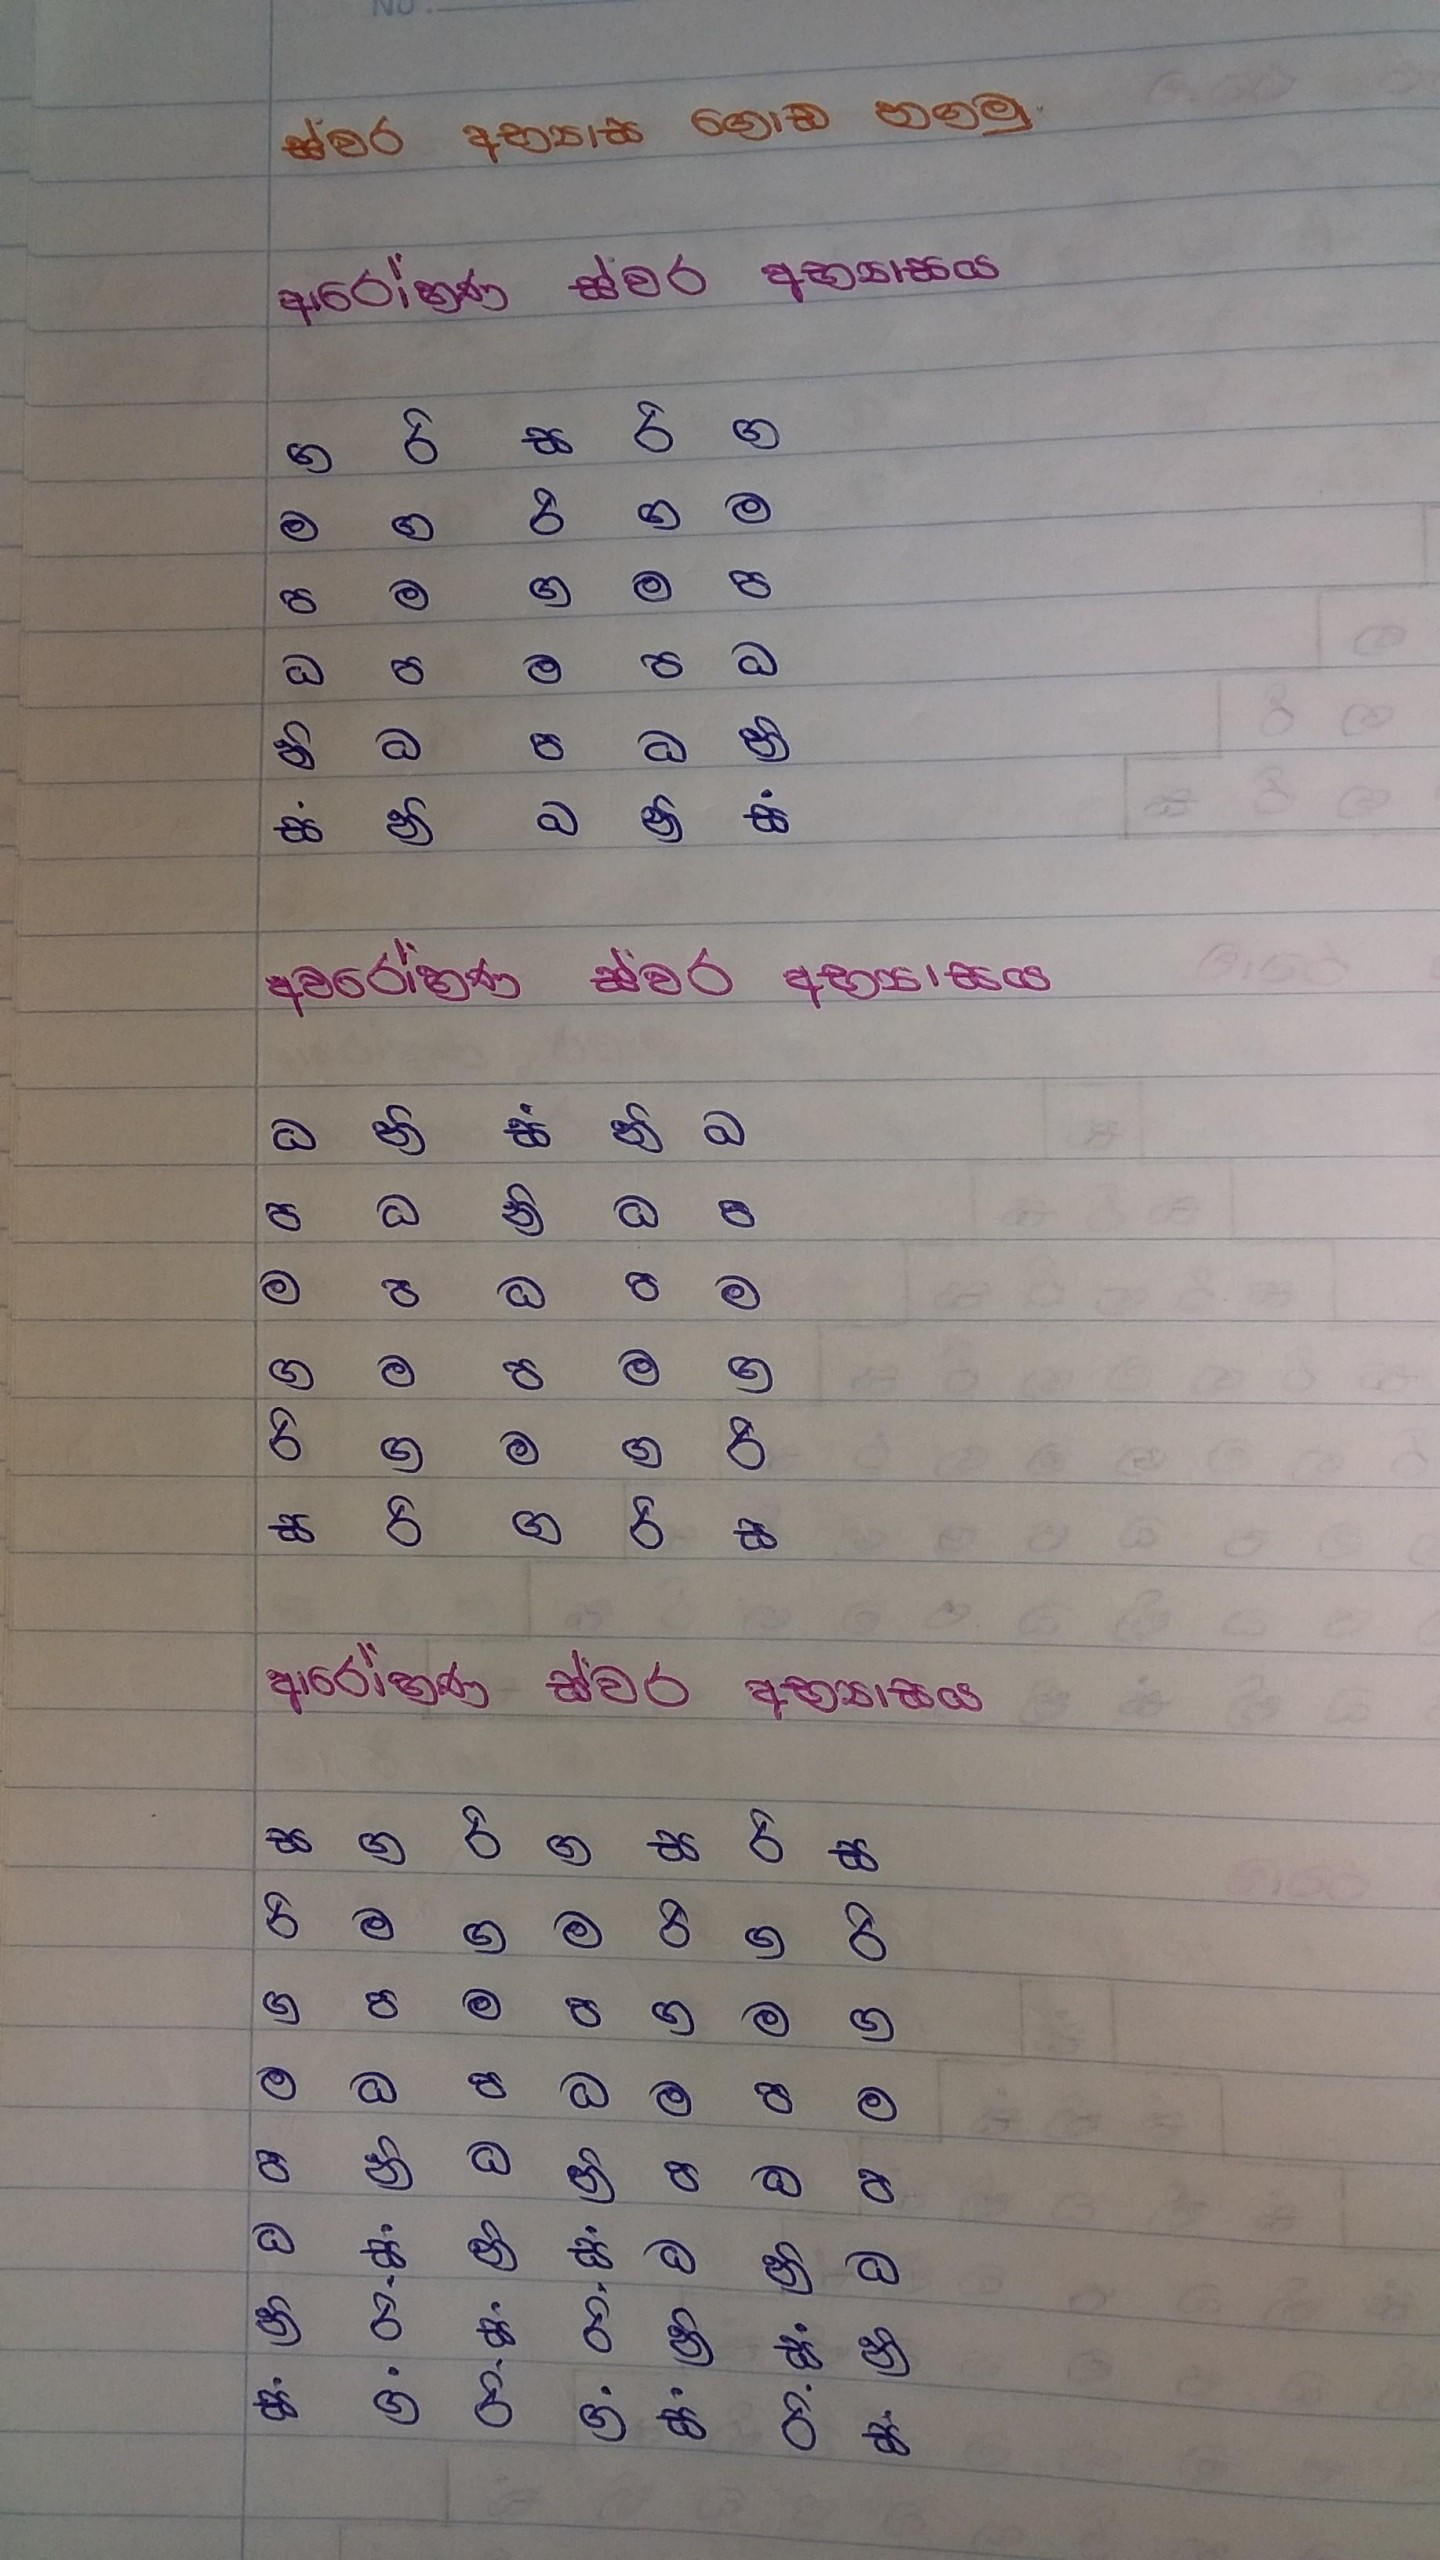 ස්වර අභ්‍යාස ගොඩ නගමු.
ආරෝහණ ස්වර අභ්‍යාසය
ග රි ස රි ග
ම ග රි ග ම
ප ම ග ම ප
ධ ප ම ප ධ
නි ධ ප ධ නි
සං නි ධ නි සං
අවරෝහණ ස්වර අභ්‍යාසය
ධ නි සං නි ධ
ප ධ නි ධ ප
ම ප ධ ප ම
ග ම ප ම ග
රි ග ම ග රි
ස රි ග රි ස
ආරෝහණ ස්වර අභ්‍යාසය
ස ග රි ග ස රි ස
රි ම ග ම රි ග රි
ග ප ම ප ග ම ග
ම ධ ප ධ ම ප ම
ප නි ධ නි ප ධ ප
ධ සං නි සං ධ නි ධ
නි රිං සං රිං නි සං නි
සං ගං රිං ගං සං රිං සං